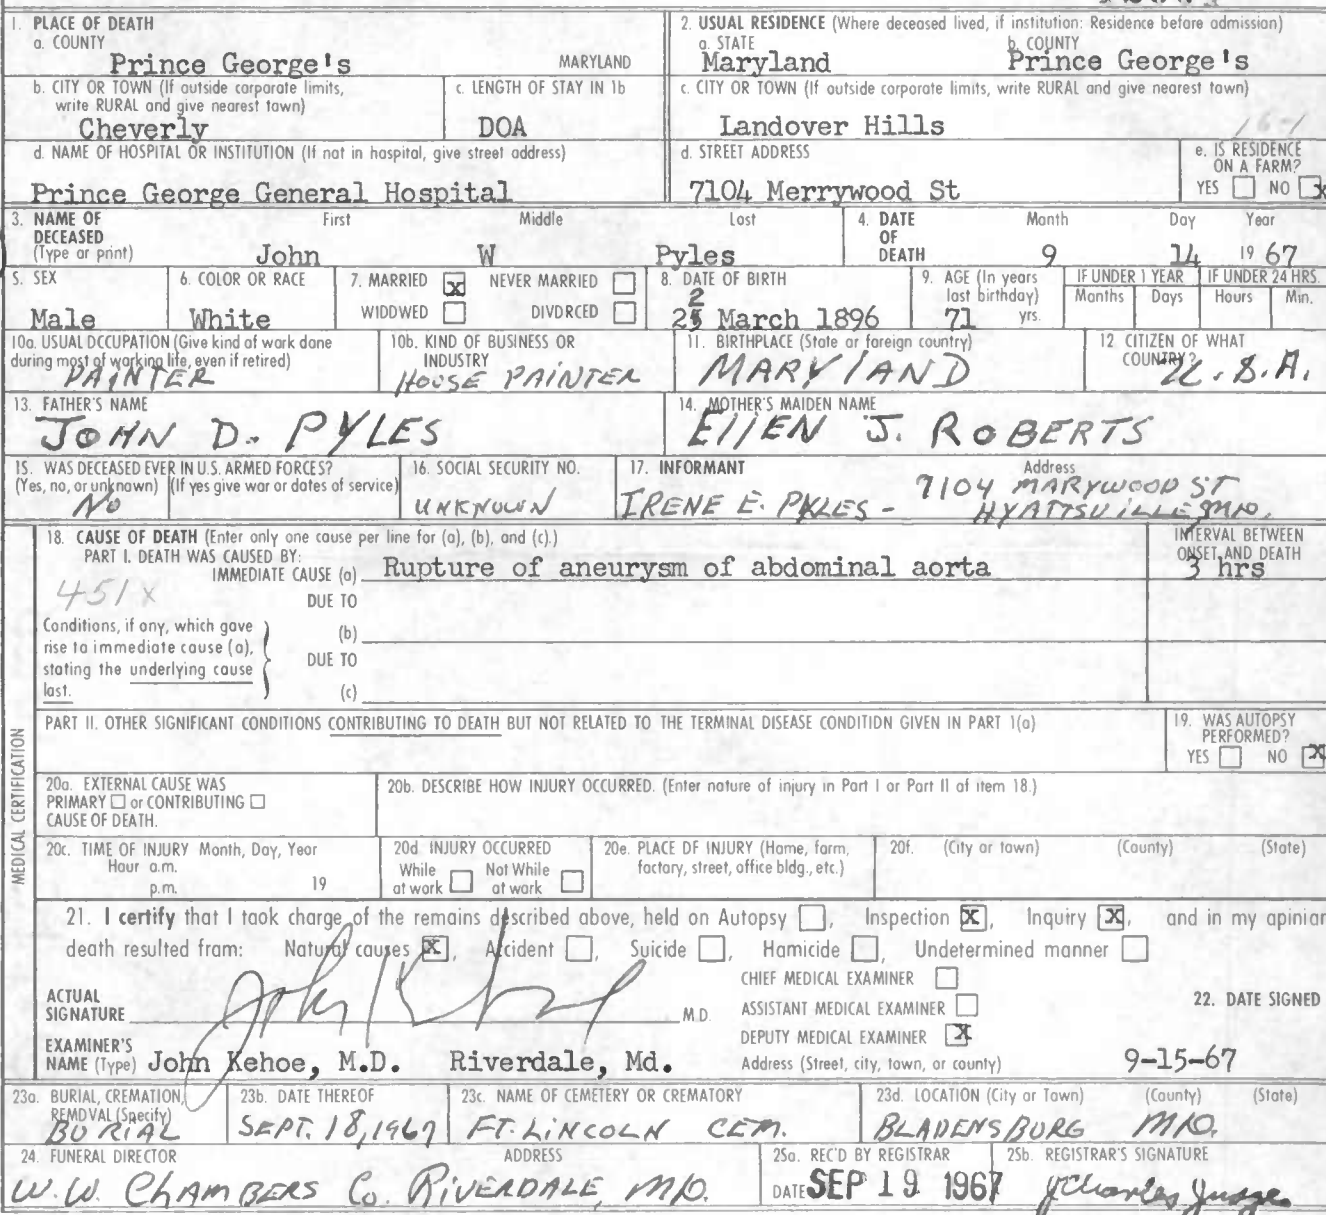 1. PLACE OF DEATH
a. COUNTY
Prince George's MARYLAND
2. USUAL RESIDENCE (Where deceased lived, if institution: Residence before admission)
a. STATE b. COUNTY
Maryland Prince George's
b. CITY OR TOWN (If outside corporate limits,
write RURAL and give nearest town)
Cheverly
c. LENGTH OF STAY IN 1b
DOA
c. CITY OR TOWN (If outside corporate limits, write RURAL and give nearest town)
Landover Hills
16-1
d. NAME OF HOSPITAL OR INSTITUTION (If not in hospital, give street address)
Prince George General Hospital
d. STREET ADDRESS
7104 Merrywood St
e. IS RESIDENCE
ON A FARM?
YES NO X
3. NAME OF
DECEASED
(Type or print)
First Middle Last
John W Pyles
4. DATE
OF
DEATH
Month Day Year
9 14 19 67
5. SEX
Male
6. COLOR OR RACE
White
7. MARRIED X NEVER MARRIED
WIDOWED DIVORCED
8. DATE OF BIRTH
2
25 March 1896
9. AGE (In years
last birthday)
71 yrs.
IF UNDER 1 YEAR
Months Days
IF UNDER 24 HRS.
Hours Min.
10a. USUAL OCCUPATION (Give kind of work done
during most of working life, even if retired)
PAINTER
10b. KIND OF BUSINESS OR
INDUSTRY
HOUSE PAINTER
11. BIRTHPLACE (State or foreign country)
MARYLAND
12 CITIZEN OF WHAT
COUNTRY?
U.S.A.
13. FATHER'S NAME
JOHN D. PYLES
14. MOTHER'S MAIDEN NAME
ELLEN J. ROBERTS
15. WAS DECEASED EVER IN U.S. ARMED FORCES?
(Yes, no, or unknown) (If yes give war or dates of service)
No
16. SOCIAL SECURITY NO.
UNKNOWN
17. INFORMANT Address
IRENE E. PYLES - 7104 MARYWOOD ST
HYATTSVILLE MD.
18. CAUSE OF DEATH (Enter only one cause per line for (a), (b), and (c).)
PART I. DEATH WAS CAUSED BY:
IMMEDIATE CAUSE (a) Rupture of aneurysm of abdominal aorta
INTERVAL BETWEEN
ONSET AND DEATH
3 hrs
451x
DUE TO
Conditions, if any, which gave
rise to immediate cause (a),
stating the underlying cause
last.
(b)
DUE TO
(c)
PART II. OTHER SIGNIFICANT CONDITIONS CONTRIBUTING TO DEATH BUT NOT RELATED TO THE TERMINAL DISEASE CONDITION GIVEN IN PART 1(a)
19. WAS AUTOPSY
PERFORMED?
YES NO X
MEDICAL CERTIFICATION
20a. EXTERNAL CAUSE WAS
PRIMARY or CONTRIBUTING
CAUSE OF DEATH.
20b. DESCRIBE HOW INJURY OCCURRED. (Enter nature of injury in Part I or Part II of item 18.)
20c. TIME OF INJURY Month, Day, Year
Hour a.m.
p.m. 19
20d INJURY OCCURRED
While Not While
at work at work
20e. PLACE OF INJURY (Home, farm,
factory, street, office bldg., etc.)
20f. (City or town) (County) (State)
21. I certify that I took charge of the remains described above, held on Autopsy, Inspection X, Inquiry X, and in my opinion
death resulted from: Natural causes X, Accident, Suicide, Homicide, Undetermined manner
ACTUAL
SIGNATURE John Kehoe M.D.
CHIEF MEDICAL EXAMINER
ASSISTANT MEDICAL EXAMINER
DEPUTY MEDICAL EXAMINER X
22. DATE SIGNED
EXAMINER'S
NAME (Type) John Kehoe, M.D. Riverdale, Md.
Address (Street, city, town, or county)
9-15-67
23a. BURIAL, CREMATION,
REMOVAL (Specify)
BURIAL
23b. DATE THEREOF
SEPT. 18, 1967
23c. NAME OF CEMETERY OR CREMATORY
FT. LINCOLN CEM.
23d. LOCATION (City or Town) (County) (State)
BLADENSBURG MD.
24. FUNERAL DIRECTOR ADDRESS
W.W. CHAMBERS Co. RIVERDALE, MD.
25a. REC'D BY REGISTRAR
DATE SEP 19 1967
25b. REGISTRAR'S SIGNATURE
J Charles Judge